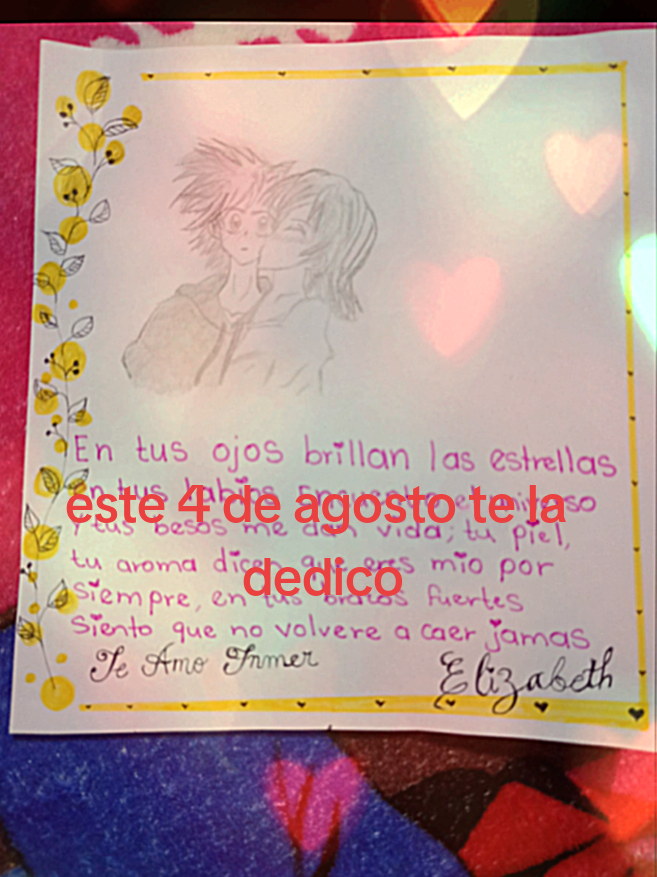 En tus ojos brillan las estrellas
en tus labios encuentro el universo
y tus besos me dan vida; tu piel,
tu aroma dicen que eres mio por
siempre, en tus brazos fuertes
siento que no volvere a caer jamas
Te Amo Inmer
Elizabeth
este 4 de agosto te la
dedico